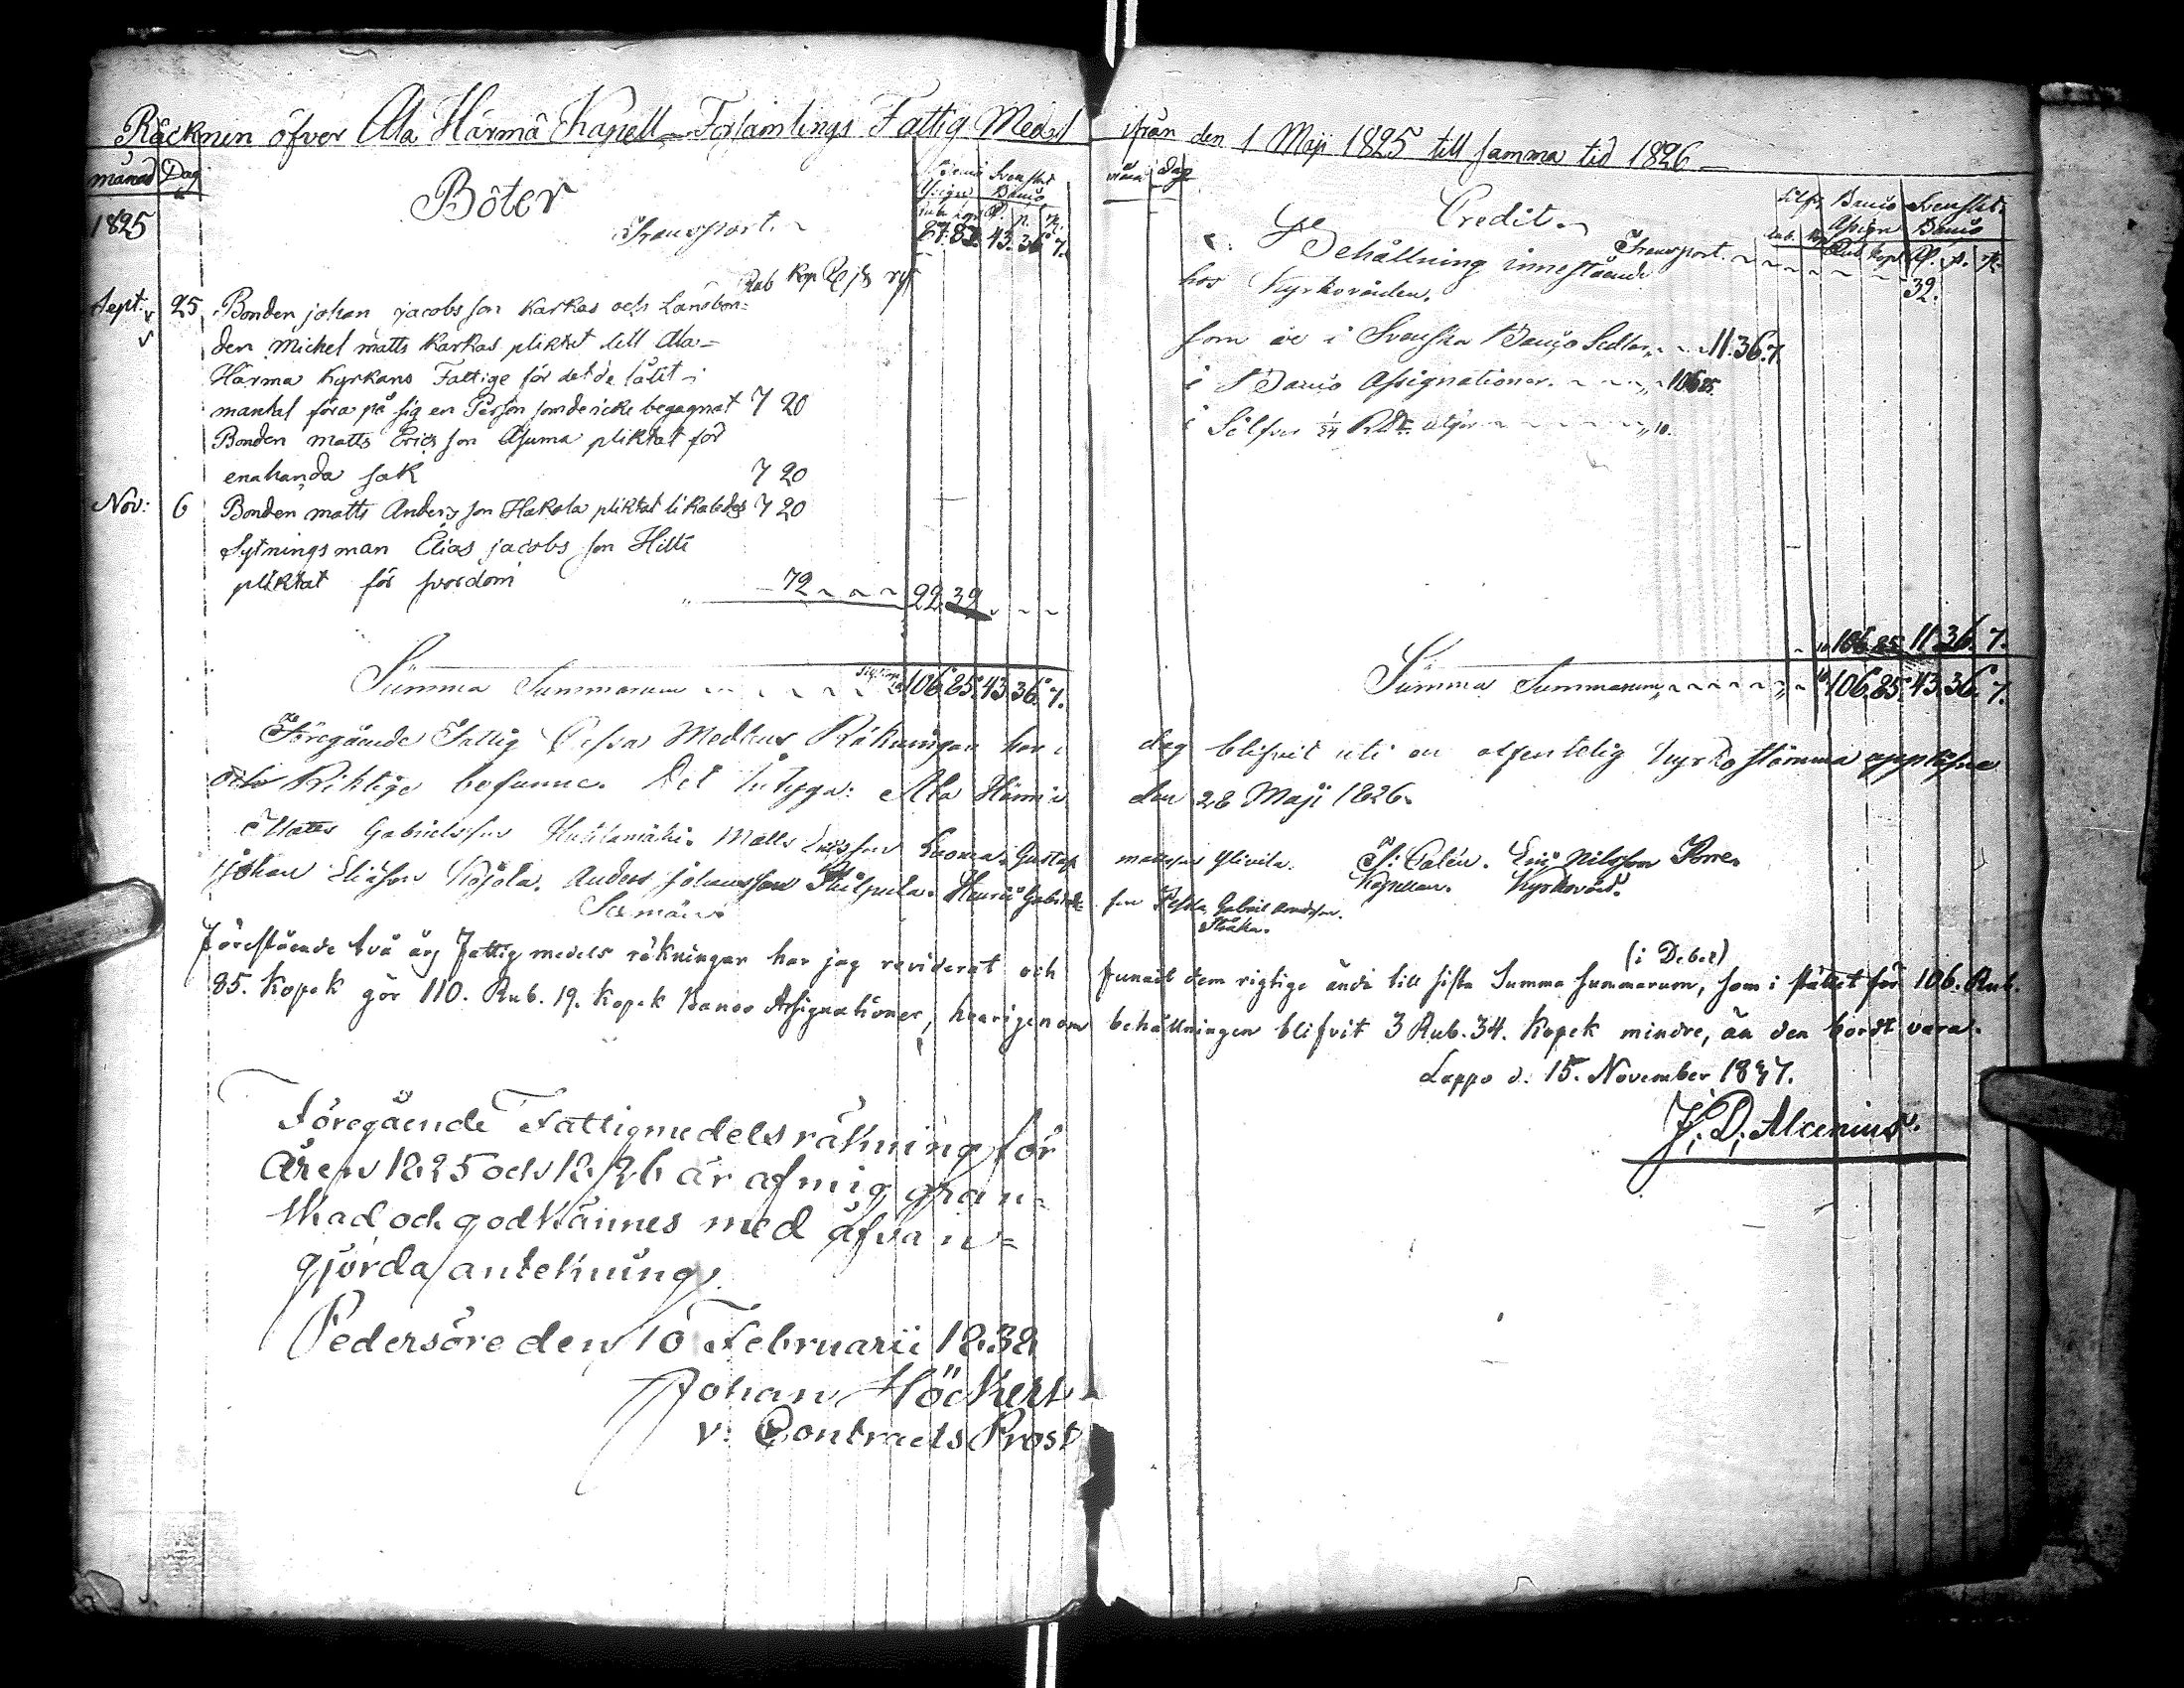 Räcknin öfver Ala Härmä Kapell Församlings Fattig Medel ifrån den 1 Maji 1825 till samma tid 1826
månad Dag
1825
Böter
Transport.
87. 83. 43. 36. 7.
Rub Kop
Sept. 25 Bonden johan jacobsson Karkas och Landbon-
den Michel matts Karkas pliktat till Ala-
Härma Kyrkans Fattige för det de låtit
mantal föra på sig en Person som de icke begagnat 7 20
Bonden matts Ericsson pliktat för
enahanda sak 7 20
Nov: 6 Bonden matts Andersson Hakola pliktat likaledes 7 20
Sytningsman Elias jacobsson Hilli
pliktat för svordom 72 22 32
Summa Summarum 106. 85. 43. 36. 7.
Dag
Credit.
Silfv. Banco Svenska
Assign Banco
Transport. 32.
Behållning innestående
hos Kyrkovärden.
som är i Svenska Banco Sedlar 11. 36. 7
i Banco Assignationer 106 85.
i Silfver 1/24 Rd utgör 10.
10 106 85 11. 36. 7.
Summa Summarum 10 106. 85. 43. 36. 7.
Föregående Fattig Cassa Medlens Räkningar har i dag blifvit uti en offentelig Kyrkostämma upplesne
och Riktige befunne. Det intyga: Ala Härmä den 28 Maji 1826.
Matts Gabrielsson Matts Ericsson Luoma. Gustaf mattsson Ylivila. Calén. Eric Nilsson Porre.
Johan Eliesson Kojola. Anders Johansson Henric Gabriels-son Gabriel Andersson. Kapellan. Kyrkovärd.
Förestående två års Fattigmedels räkningar har jag reviderat och funnit dem rigtige ända till sista Summa summarum, (i Debet) som i stället för 106. Rub.
85. Kopek gör 110. Rub. 19. Kopek Banco Assignationer, hvarigenom behållningen blifvit 3 Rub. 34. Kopek mindre, än den bordt vara.
Lappo d. 15. November 1837.
J. D. Alcenius.
Föregående Fattigmedelsräkning för
Åren 1825 och 1826 är af mig gran-
skad och godkännes med åfvan-
gjorda anteckning.
Pedersöre den 10 Februarii 1838
Johan Höckert
v. Contracts Prost